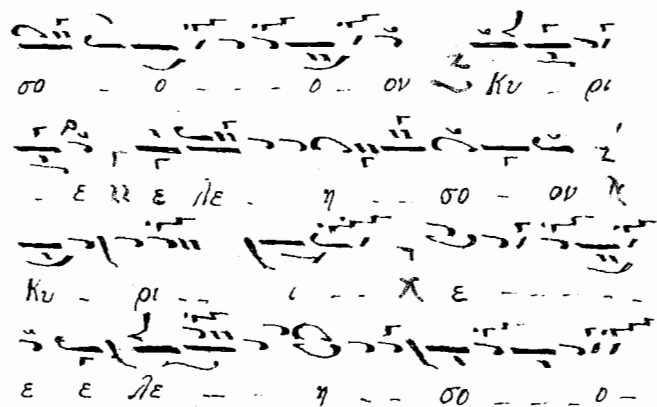 σο - ο - - - - ο - - ον Κυ - ρι
- ε ε λε - η - - σο - ον
Κυ - ρι - - ι - - ε - - - - - -
ε ε λε - - - η - - σο - - - - ο -